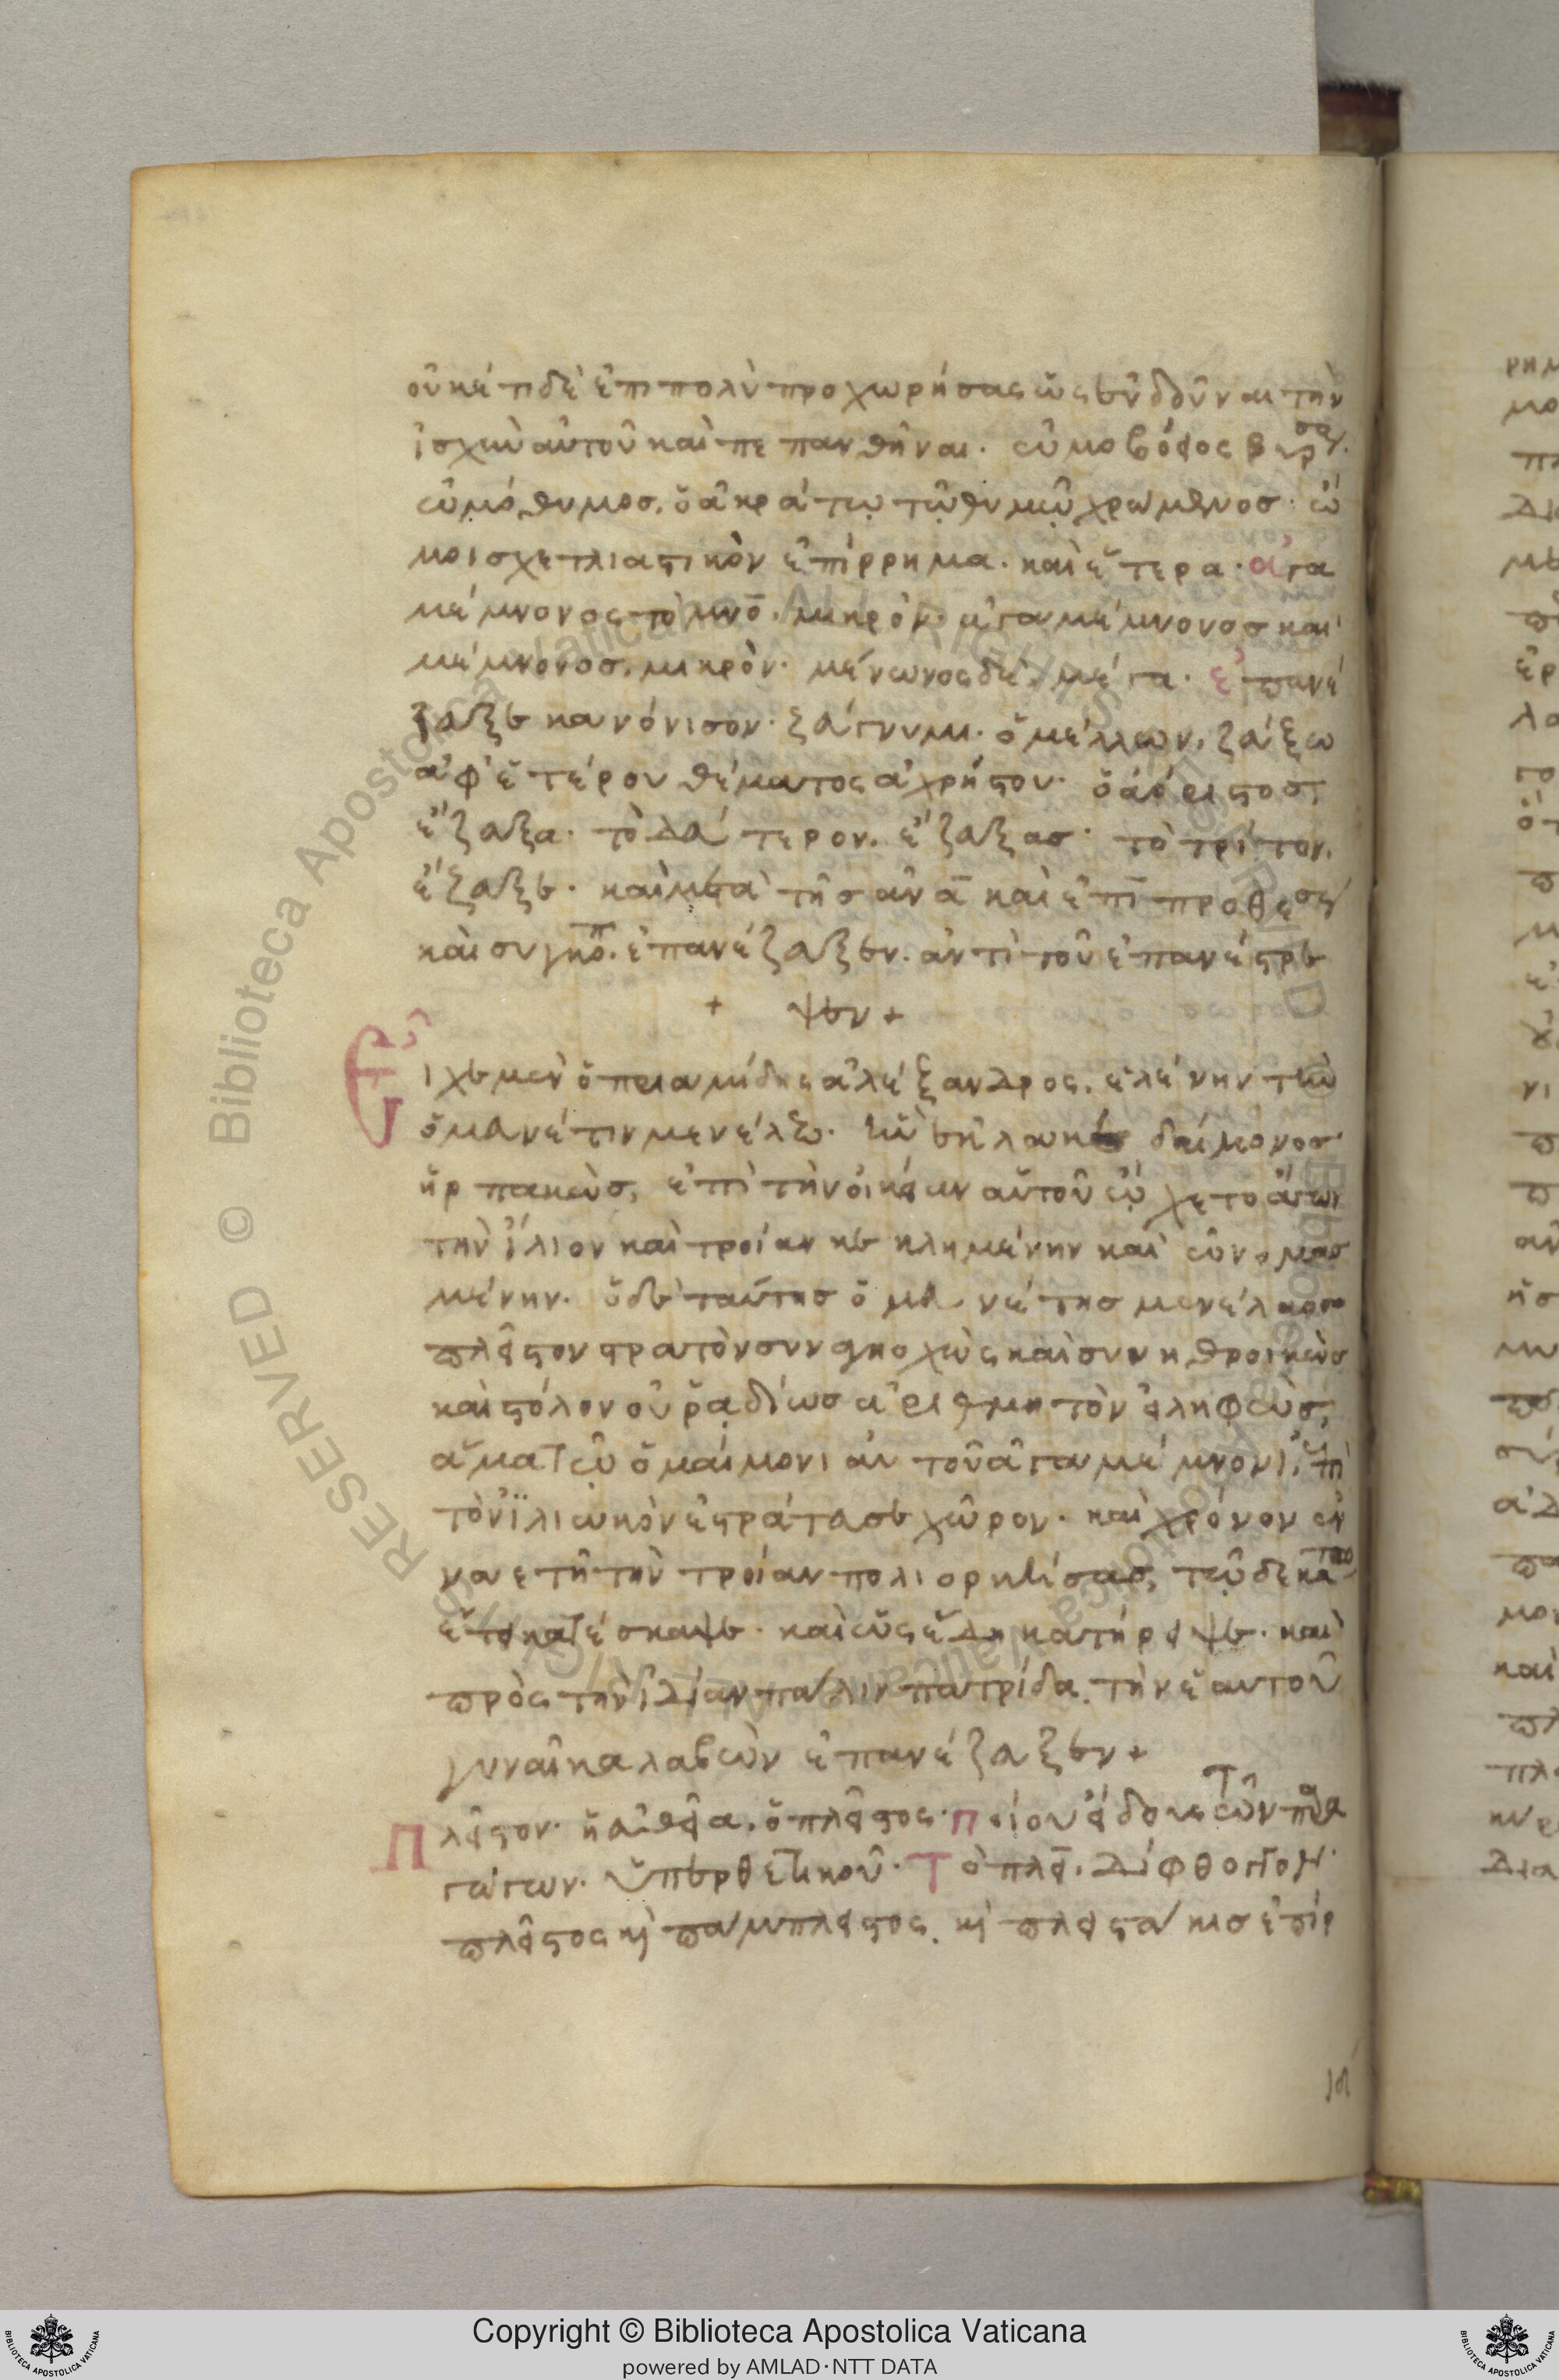 οὐκέτι δὲ ἐπιπολὺ προχωρήσας ὥς ἐνδοῦναι τὴν
ἰσχὺν αὐτοῦ καὶ πεπανθῆναι. ὠμοβόειος βύρσα.
ὠμόθυμοσ. ὁ ἀκράτῳ τῷ θυμῷ χρώμενοσ. ὤ
μοι σχετλιαστικὸν ἐπίρρημα. καὶ ἕτερα. ἀγα
μέμνονος τὸ μνο. μικρόν. ἀγαμέμνονοσ καὶ
μέμνονοσ. μικρὸν. μένωνος δὲ μέγα. ἐπανέ
ζευξε κανόνισον. ζεύγνυμι. ὁ μέλλων. ζεύξω
ἀφ' ἑτέρου θέματος ἀχρήστου. ὁ ἀόριστοσ
ἔζευξα. τὸ δεύτερον. ἔζευξασ. τὸ τρίτον.
ἔζευξε. καὶ μετὰ τῆσ ἀνα καὶ ἐπι προθέσε
καὶ συγκοπ. ἐπανέζευξεν. ἀντὶ τοῦ ἐπανέστρε
+ ψεν +
Εἶχε μὲν ὁ πριαμίδης ἀλέξανδρος. ἑλένην τὴν
ὁμευνέτιν μενέλεω. ἣν ἐκ λακε δαίμονοσ
ἡρπακὼσ, ἐπὶ τὴν οἰκείαν αὐτοῦ ᾤχετο ἄγων
τὴν ἴλιον καὶ τροίαν κεκλημένην καὶ ὠνομασ
μένην. ὁ δὲ ταύτησ ὁμευνέτησ μενέλαοσ
πλεῖστον στρατὸν συνενηοχὼς καὶ συνηθροικὼσ
καὶ στόλον οὐ ῥᾳδίωσ ἀριθμητὸν εἰληφὼσ,
ἅμα τῷ ὁμαίμονι αὐτοῦ ἀγαμέμνονι, ἐπὶ
τὸν ἰλιακὸν ἐστράτευσε χῶρον. καὶ χρόνον ἐν
ναετῆ τὴν τροίαν πολιορκήσασ, τῷ δεκάτω
ἔτει κατέσκαψε. καὶ ὡς ἔδη κατήρειψε. καὶ
πρὸς τὴν ἰδίαν πάλιν πατρίδα. τὴν ἑαυτοῦ
γυναῖκα λαβὼν ἐπανέζευξεν +
Πλεῖστον. ἡ εὐθεῖα. ὁ πλεῖστος. ποίου εἴδους τῶν παρα
γώγων. ὑπερθετικοῦ. Τὸ πλει. δίφθογγον.
πλεῖστος κ πάμπλειστος. κ πλειστάκισ ἐπίρ